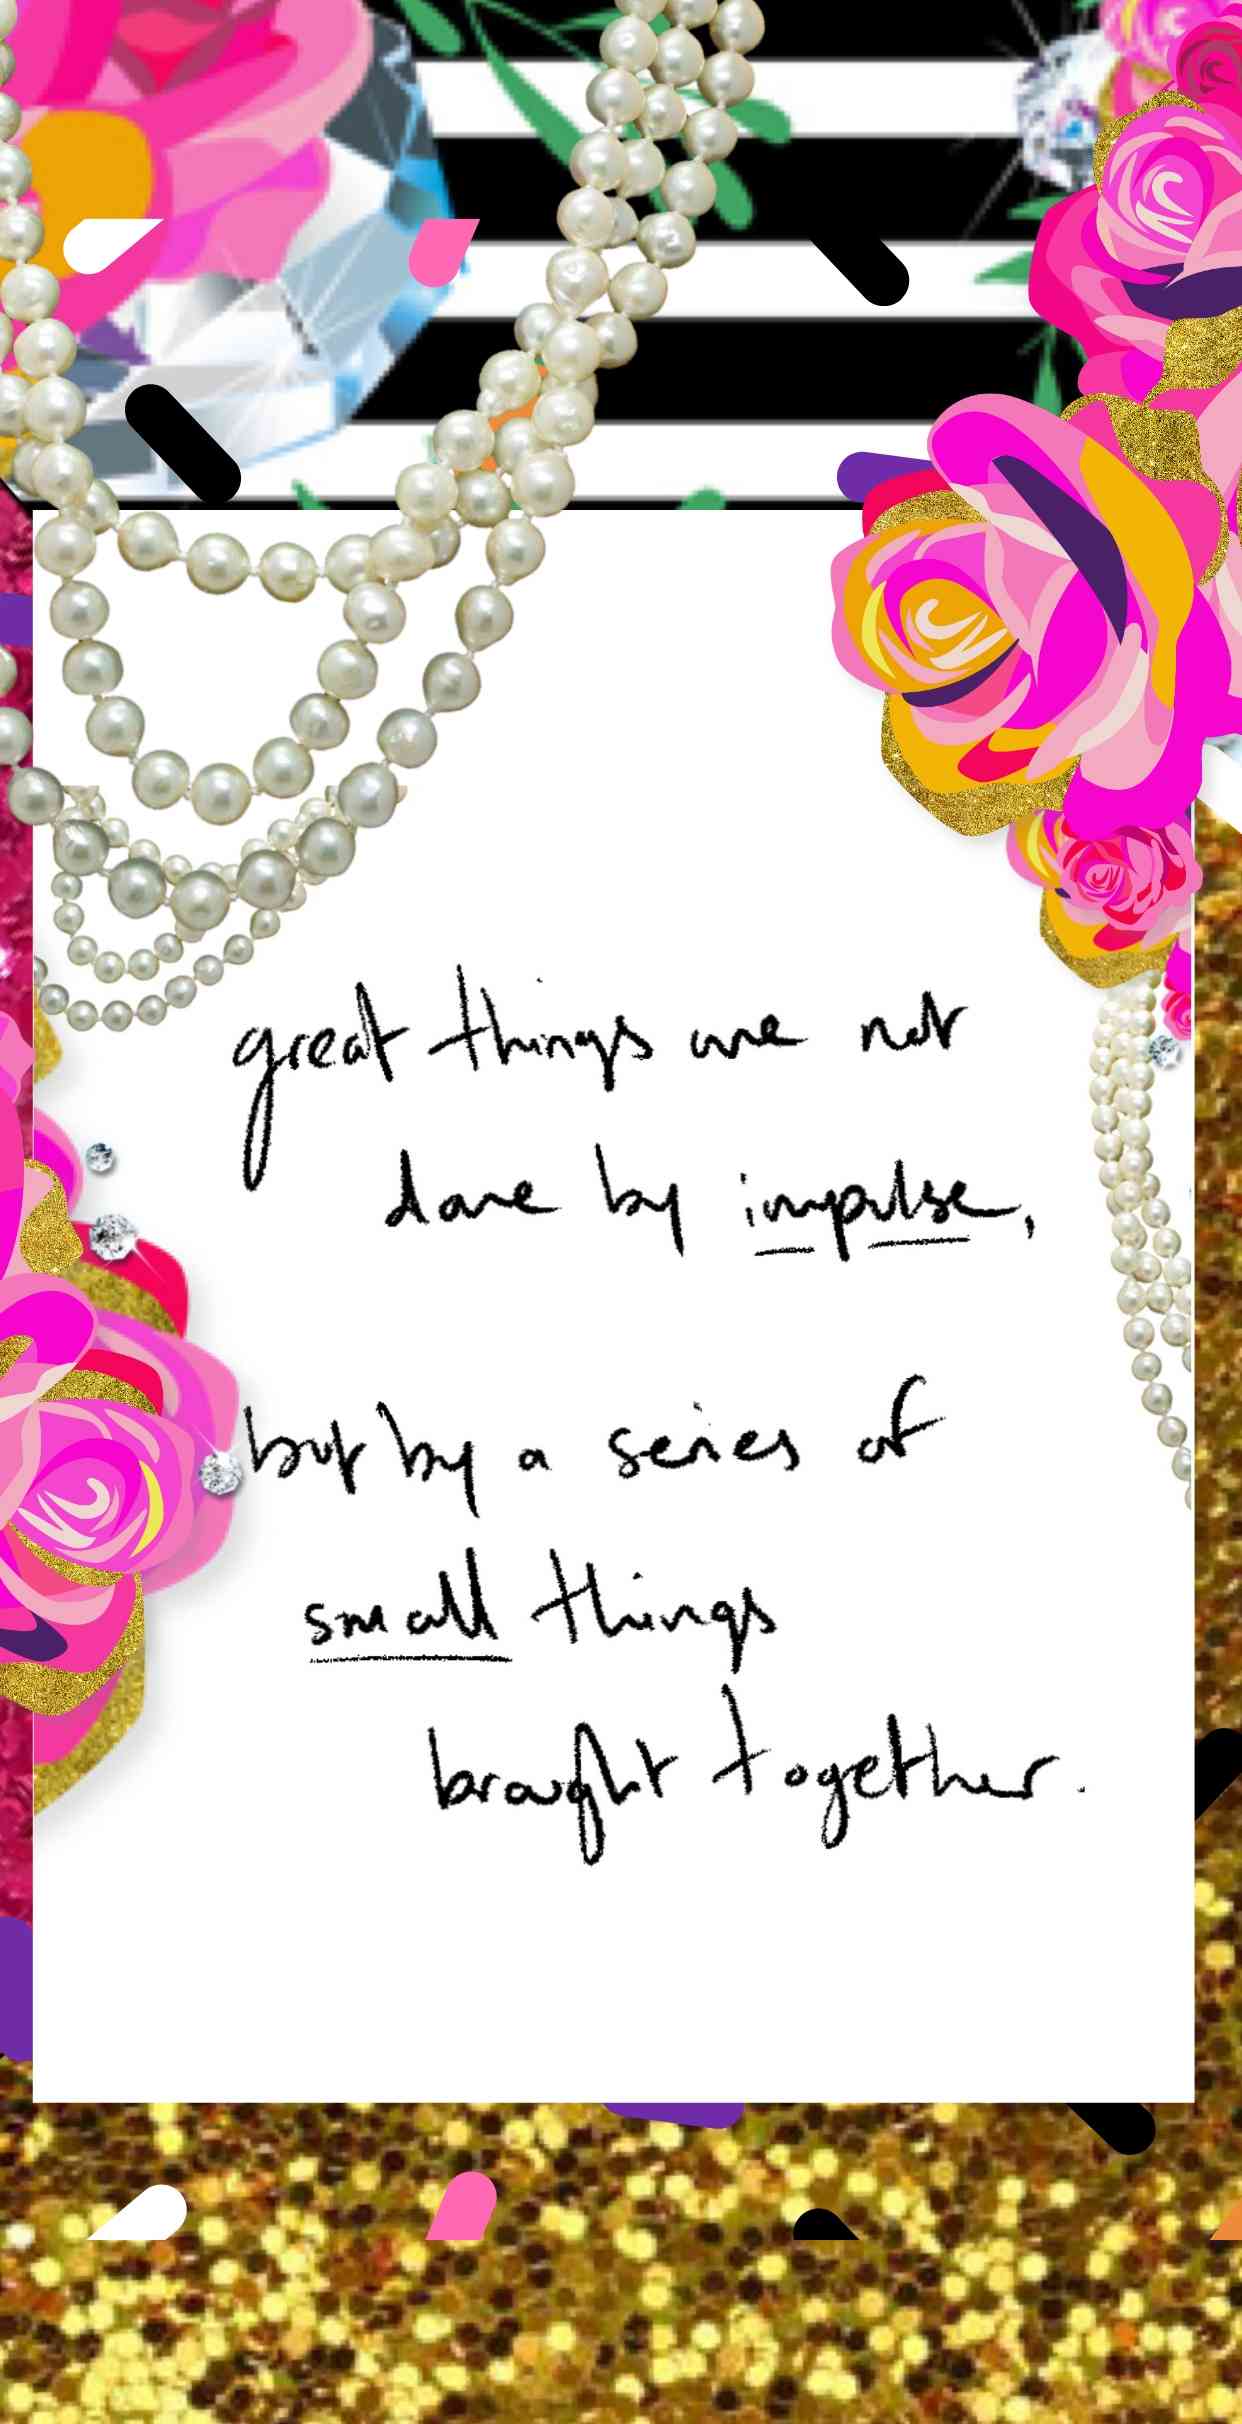 great things are not
done by impulse,
but by a series of
small things
brought together.